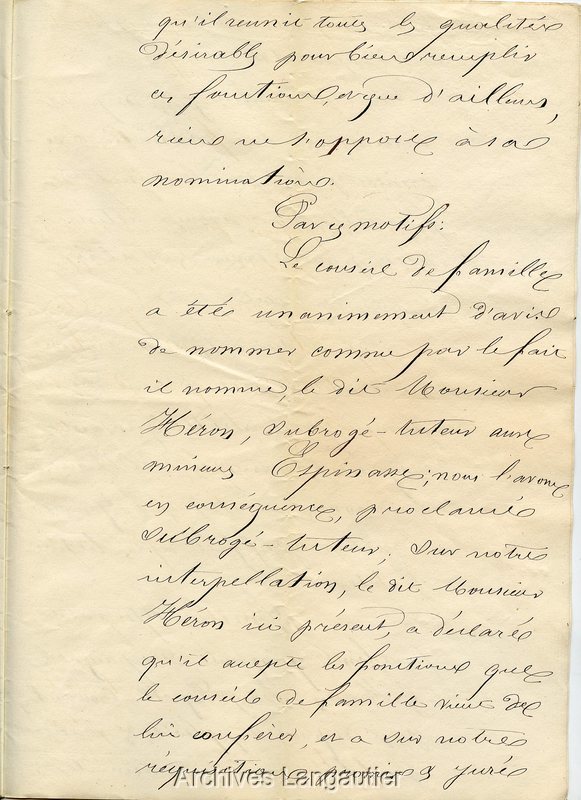 qu'il reunit toutes les qualités
désirables pour bien remplir
ces fonctions, et que d'ailleurs,
rien ne s'oppose à sa
nomination.
Par ces motifs:
Le conseil de famille
a été unanimement d'avis
de nommer comme par le fait
il nomme, le dit Monsieur
Héron, subrogé-tuteur aux
mineurs Espinasse; nous l'avons
en conséquence, proclamé
subrogé-tuteur; sur notre
interpellation, le dit Monsieur
Héron ici présent, a déclaré
qu'il accepte les fonctions que
le conseil de famille vient de
lui conférer, et a sur notre
réquisition, promis & juré
Archives Langautier